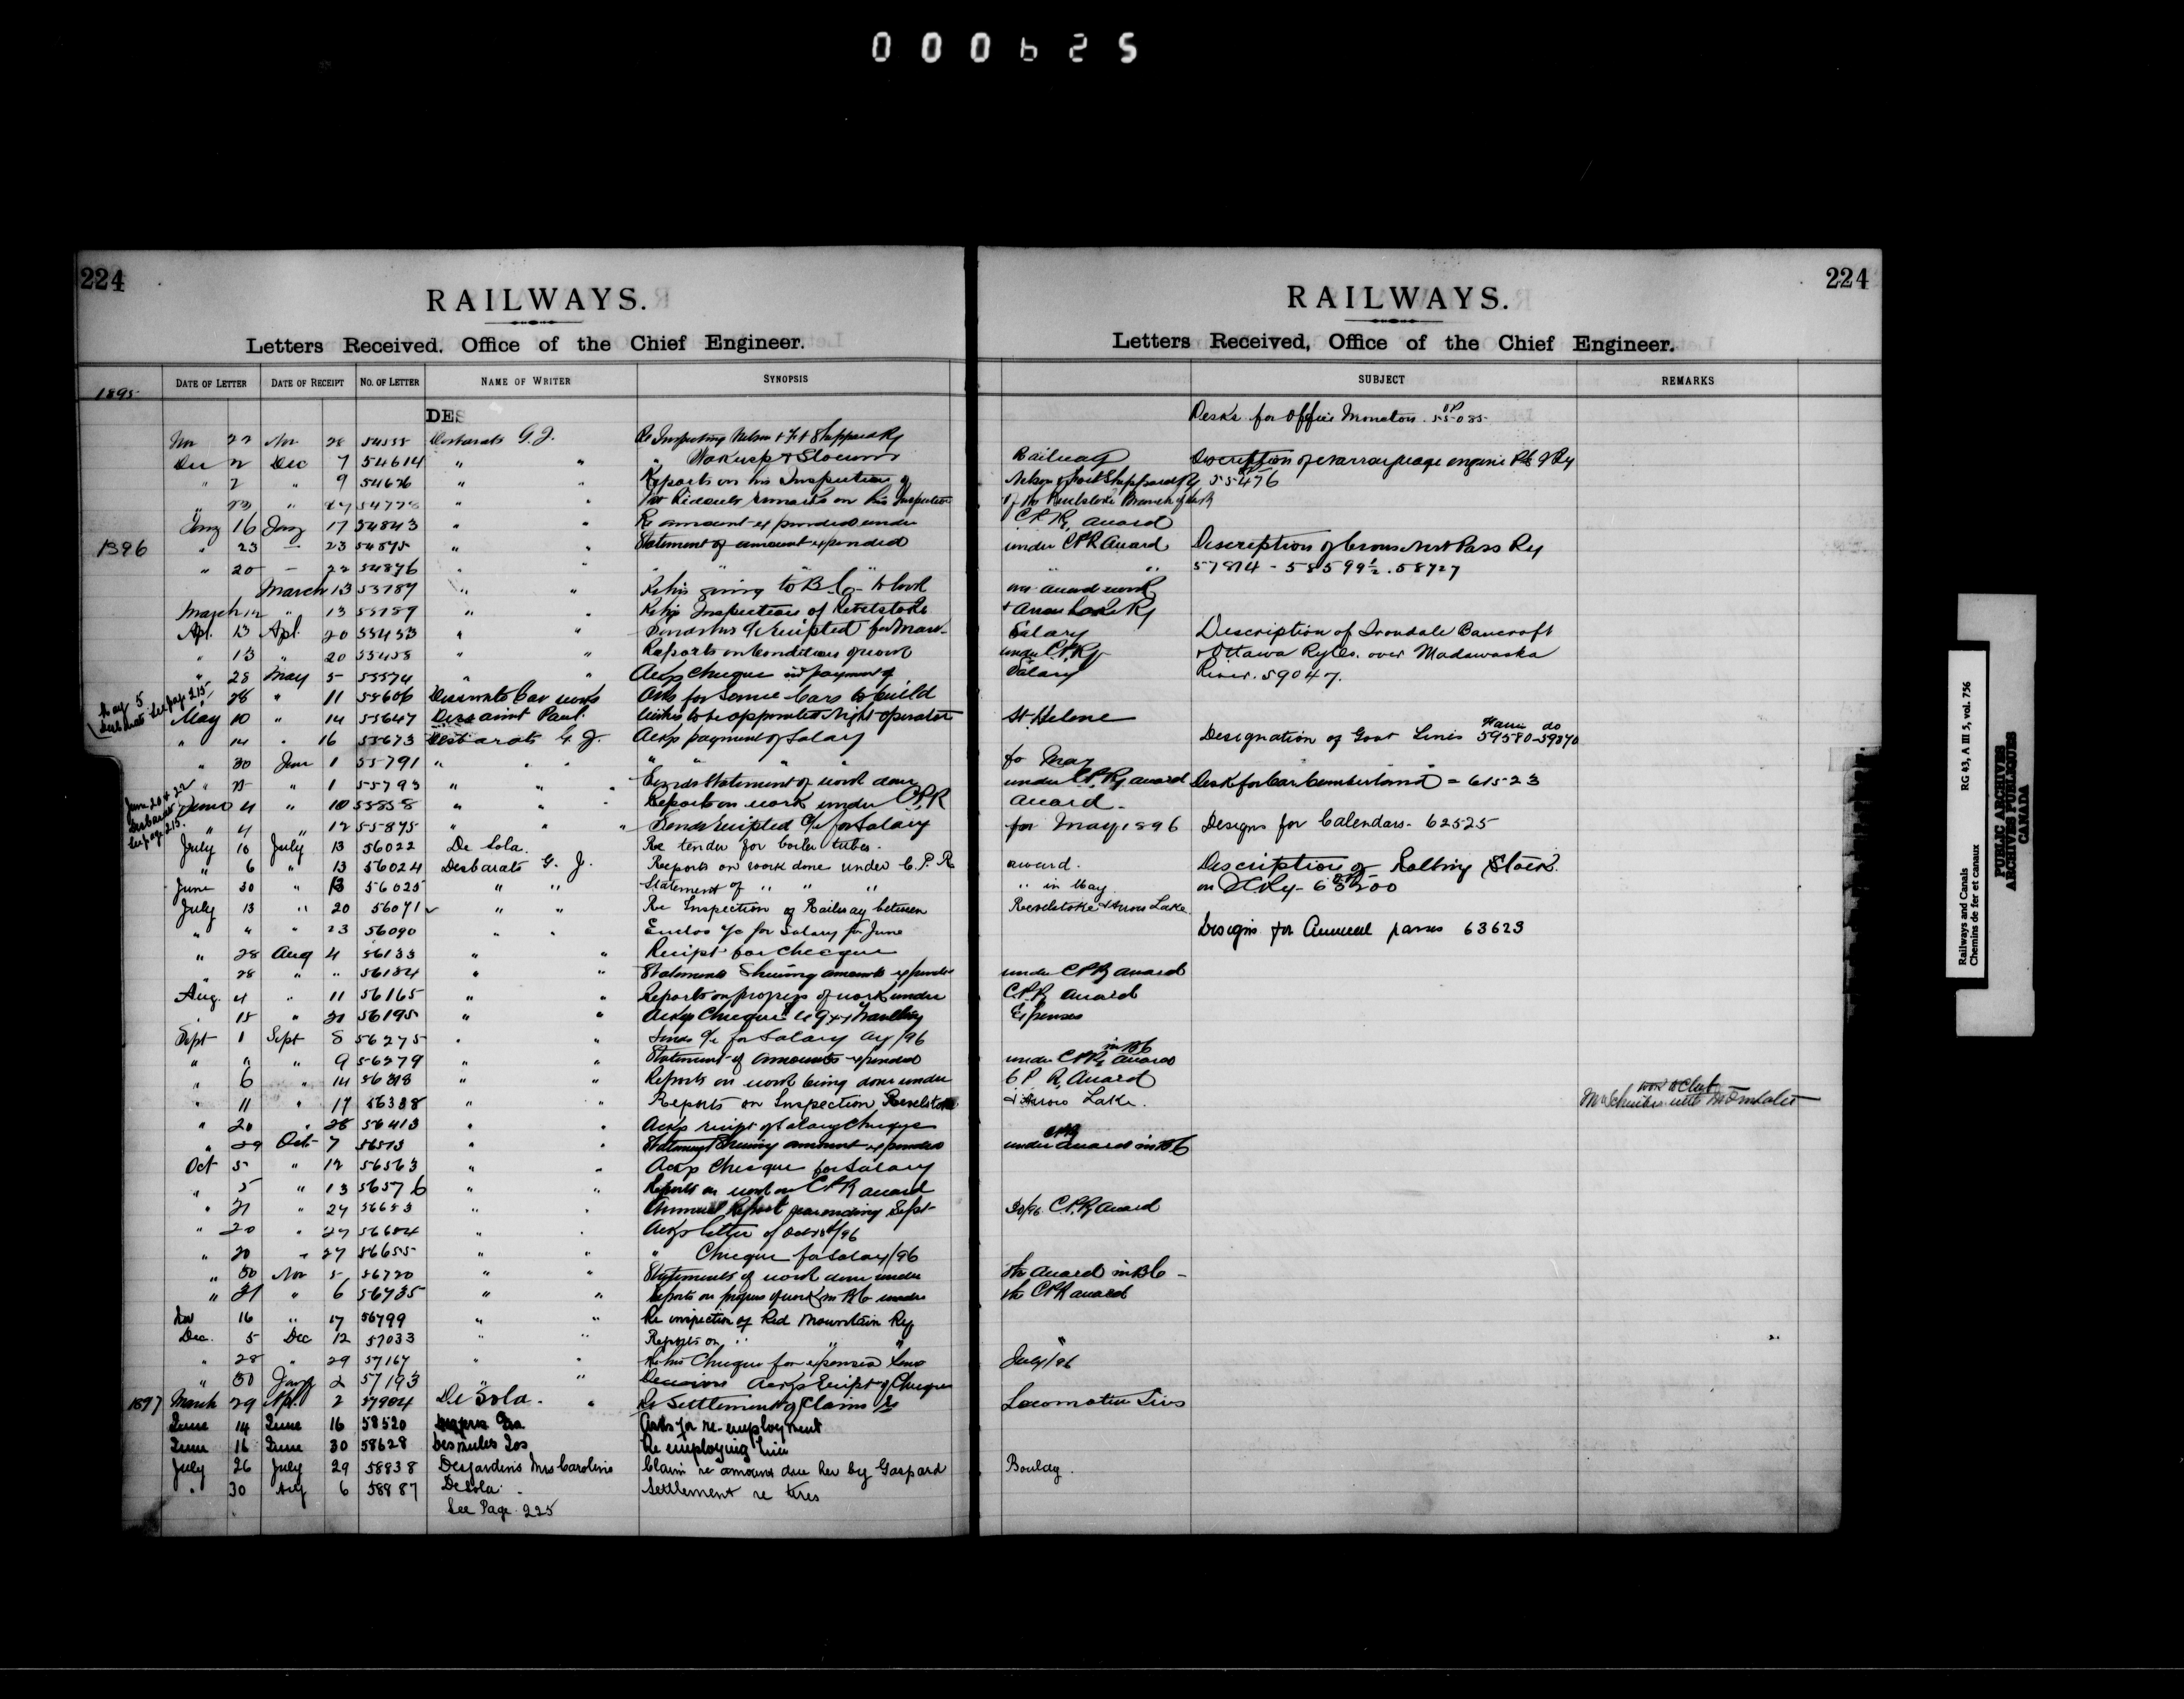 000625
224
RAILWAYS.
Letters Received. Office of the Chief Engineer.
1895 DATE OF LETTER DATE OF RECEIPT NO. OF LETTER NAME OF WRITER SYNOPSIS
DES
Nov 22 Nov 28 Desbarats G. J. Re Inspecting Nelson & Ft Sheppard Ry
Dec 2 Dec 7 54614 " " " Nakusp & Slocum
" 2 " 9 54626 " " Reports on his Inspection of
" " 54778 " " remarks on his Inspection
Jany 16 Jany 17 54843 " " Re amount expended under
1896 " 23 — 23 54875 " " Statement of amount expended
" 20 — 22 54876 " " " " "
March 13 55187 " " Re his going to B.C. to look
March 12 " 13 55189 " " Re his Inspection of Revelstoke
Apl. 13 Apl. 20 55453 " " Sends his a/c receipted for Mar.
" 13 " 20 55458 " " Reports on Condition of work
" 28 May 5 55574 " " Ackgs Cheque in payment of
May 5 Desbarats See page 215
" 28 " 11 55606 Car works Asks for some Cars to build
May 10 " 14 55647 Dessaint Paul. Wishes to be appointed Night operator
" 14 " 16 55673 Desbarats G. J. Ackgs payment of Salary
" 30 June 1 55791 " " " " " "
" " 1 55793 " " " Sends Statement of work done
June 20 & 22 Desbarats See page 215.
June 4 " 10 55858 " " " Reports on work under C.P.R
" 4 " 12 55875 " " " Sends receipted a/c for Salary
July 10 July 13 56022 De Sola. Re tender for boiler tubes.
" 6 " 13 56024 Desbarats G. J. Reports on work done under C. P. R
June 30 " 13 56025 " " Statement of " " "
July 13 " 20 56071 " " Re Inspection of Railway between
" " " 23 56090 " " Enclos a/c for Salary for June
" 28 Aug 4 56133 " " Receipt for Cheque
" 28 " " 56134 " " Statements Shewing amounts expended
Aug. 4 " 11 56165 " " Reports on progress of work under
" 18 " 21 56195 " " Ackgs Cheque
Sept 1 Sept 8 56275 " " Sends a/c for Salary Ag/96
" " " 9 56279 " " Statement of Amounts expended
" 6 " 14 56318 " " Reports on work being done under
" 11 " 17 56338 " " Reports on Inspection Revelstoke
" 20 " 28 56413 " " Ackgs receipt of Salary Cheque
" 29 Oct 7 56513 " " Statement Shewing amount expended
Oct 5 " 12 56563 " " Ackgs Cheque for Salary
" 5 " 13 56576 " " Reports on work on C.P.R award
" 21 " 24 56653 " " Annual Report year ending Sept
" 20 " 27 56654 " " Ackgs letter of
" 20 " 27 56655 " " " Cheque for Salary/96
" 30 Nov 5 56720 " " Statements of work done under
" 31 " 6 56735 " " Reports on progress of work in B.C under
Nov 16 " 17 56799 " " Re inspection of Red Mountain Ry
Dec. 5 Dec 12 57033 " " Reports on " " "
" 28 " 29 57167 " " Re his Cheque for expenses
" 30 Jany 2 57193 " " Ackgs Receipt of Cheque
1897 March 29 Apl. 2 57904 De Sola. " Re Settlement of Claims
June 14 June 16 58520 Asks for re-employment
June 16 June 30 58628 Desmules Jos Re employing him
July 26 July 29 58938 Desjardins Mrs Caroline Claim re amount due her by Gaspard
" 30 Aug 6 58987 De Sola. Settlement re tires
See Page 225
224
RAILWAYS.
Letters Received, Office of the Chief Engineer.
SUBJECT REMARKS
Desks for Office Moncton. 55085
Railway Description of
Nelson & Fort Sheppard Ry 55476
of the Revelstoke Branch of
C.P.R. award
under C.P.R award Description of Crows Nest Pass Ry
" " 57814 - 58599½. 58727
on award work
& Arrow Lake Ry
Salary Description of Irondale Bancroft
under C.P.Ry & Ottawa Ry Co. over Madawaska
Salary River. 59047.
St Helene
Designation of Govt Lines 59580-59870
for May
under C.P.Ry award Desk for Car Cumberland = 61523
award.
for May 1896 Designs for Calendars. 62525
award. Description of Rolling Stock
" in May on
Revelstoke & Arrow Lake
Designs for Annual passes 63623
under C.P.R award
C.P.R award
Expenses
in BC
under C.P.R. award
C P R, Award
& Arrow Lake.
CPR
under award in BC
30/96 C.P.R award
the award in B.C -
the C.P.R award
July/96
Locomotive Tires
Bouldy.
Railways and Canals RG 43, A III 5, vol. 756
Chemins de fer et canaux
PUBLIC ARCHIVES
ARCHIVES PUBLIQUES
CANADA